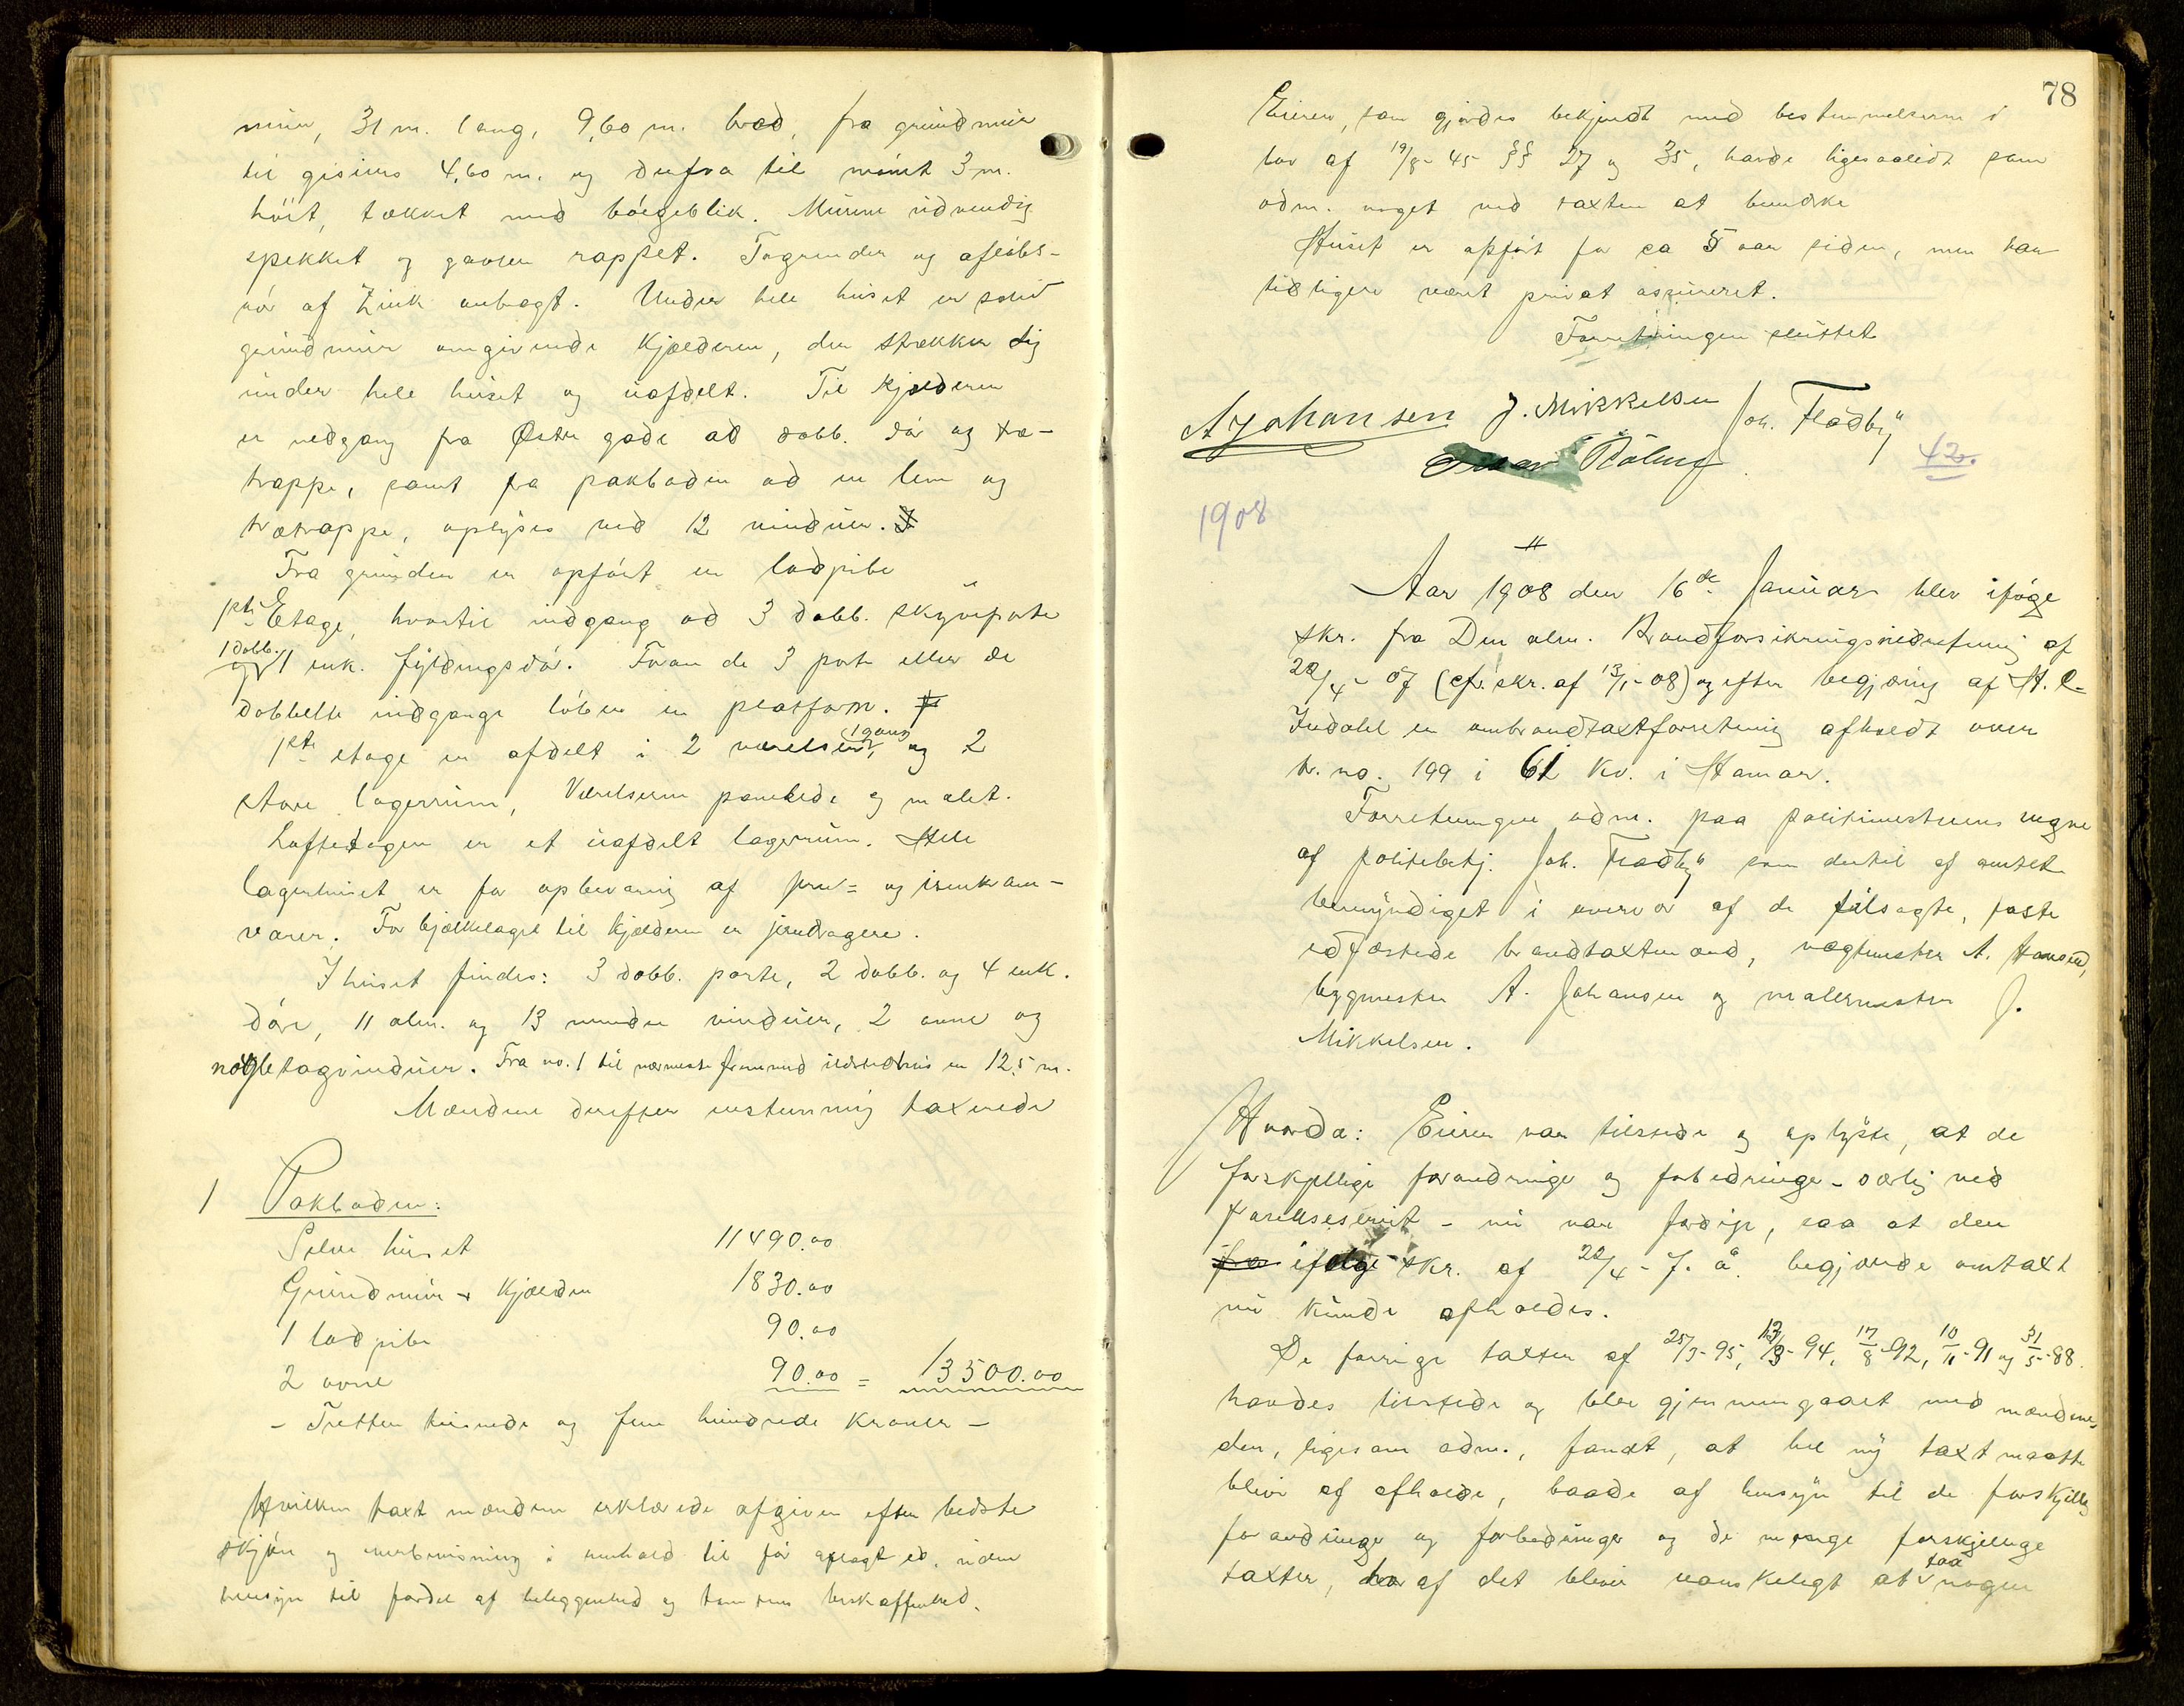 mur, 31 m. lang, 9,60 m. bred, fra grundmur
til gesims 4,60 m. og derfra til mønet 3 m.
høit, tækket med bølgeblik. Murene udvendig
spekket og gavlen rappet. Tagrender og afløbs-
rør af Zink anbragt. Under hele huset er solid
grundmur omgivende Kjælderen, der strækker sig
under hele huset og uafdelt. Til Kjælderen
er nedgang fra Østre gade ad dobb. dør og træ-
trappe, samt fra pakboden ad en lem og
trætrappe, oplyses ved 12 vinduer.
Fra grunden er opført en ladpibe
1ste Etage, hvortil indgang ad 3 dobb. skyveporte
1 dobb.
og 1 enk. fyldingsdør. Foran de 3 porte eller de
dobbelte indgange løber en platform.
1 gang
1ste etage er afdelt i 2 værelser, og 2
store lagerrum, Værelserne panelede og malet.
Loftetagen er et uafdelt lagerrum. Hele
lagerhuset er for opbevaring af jern- og isenkram-
varer. For bjælkelaget til Kjælderen er jerndragere.
I huset findes: 3 dobb. porte, 2 dobb. og 4 enk.
døre, 11 alm. og 13 mindre vinduer, 2 ovne og
nogle tagvinduer. Fra no. 1 til nærmeste fremmed ildstedshus er 12,5 m.
Mændene derefter enstemmig taxerede
1 Pakboden:
Selve huset 11490.00
Grundmur + Kjælder 1830.00
1 ladpibe 90.00
2 ovne 90.00 = 13500.00
- Tretten tusinde og fem hundrede Kroner -
Hvilken taxt mændene erklærede afgiven efter bedste
skjøn og overbevisning i henhold til før aflagt ed, uden
hensyn til fordel af beliggenhed og tomtens beskaffenhed.
78
Eieren, som gjordes bekjendt med bestemmelserne i
lov af 19/8-45 §§ 27 og 35, havde ligesaalidt som
adm. noget ved taxten at bemærke
Huset er opført for ca 5 aar siden, men har
tidligere været privat assureret.
Forretningen sluttet
A Johansen J. Mikkelsen Joh. Fladby
42.
1908
Aar 1908 den 16de Januar blev ifølge
skr. fra Den alm. Brandforsikringsindretning af
22/4-07 (cfr. skr. af 13/1-08) og efter begjæring af H. C.
Indahl en ombrandtaxtforretning afholdt over
br. no. 199 i 61 Kv. i Hamar.
Forretningen adm. paa politimesterens vegne
af politibetj. Joh. Fladby som dertil af amtet
bemyndiget i overvær af de tilsagte, faste
edfæstede brandtaxtmænd, vægtmester A. Hansen,
bygmester A. Johansen og malermester J.
Mikkelsen.
Hvorda: Eieren var tilstede og oplyste, at de
forskjellige forandringer og forbedringer - særlig ved
værelseshuset - nu var færdige, saa at den
ifølge skr. af 22/4-f. å. begjærede omtaxt
nu kunde afholdes.
De forrige taxter af 25/3-95, 13/8-94, 17/8-92, 10/11-91 og 31/5-88.
havdes tilstede og blev gjennemgaaet med mændene,
der, ligesom adm., fandt, at hel ny taxt maatte
blive at afholde, baade af hensyn til de forskjellig
forandringer og forbedringer og de mange forskjellige
faa
taxter, hvoraf det bliver vanskeligt at nogen